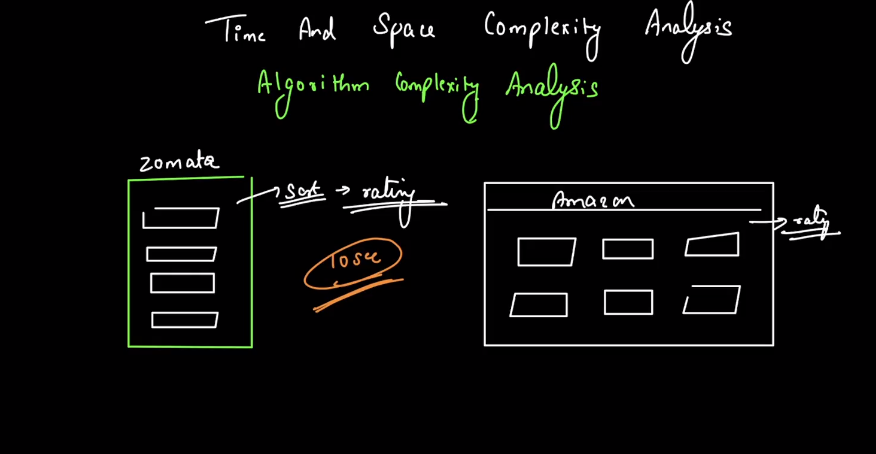 Time And Space Complexity Analysis
Algorithm Complexity Analysis
Zomato
Sort → rating
10sec
Amazon
→ rating